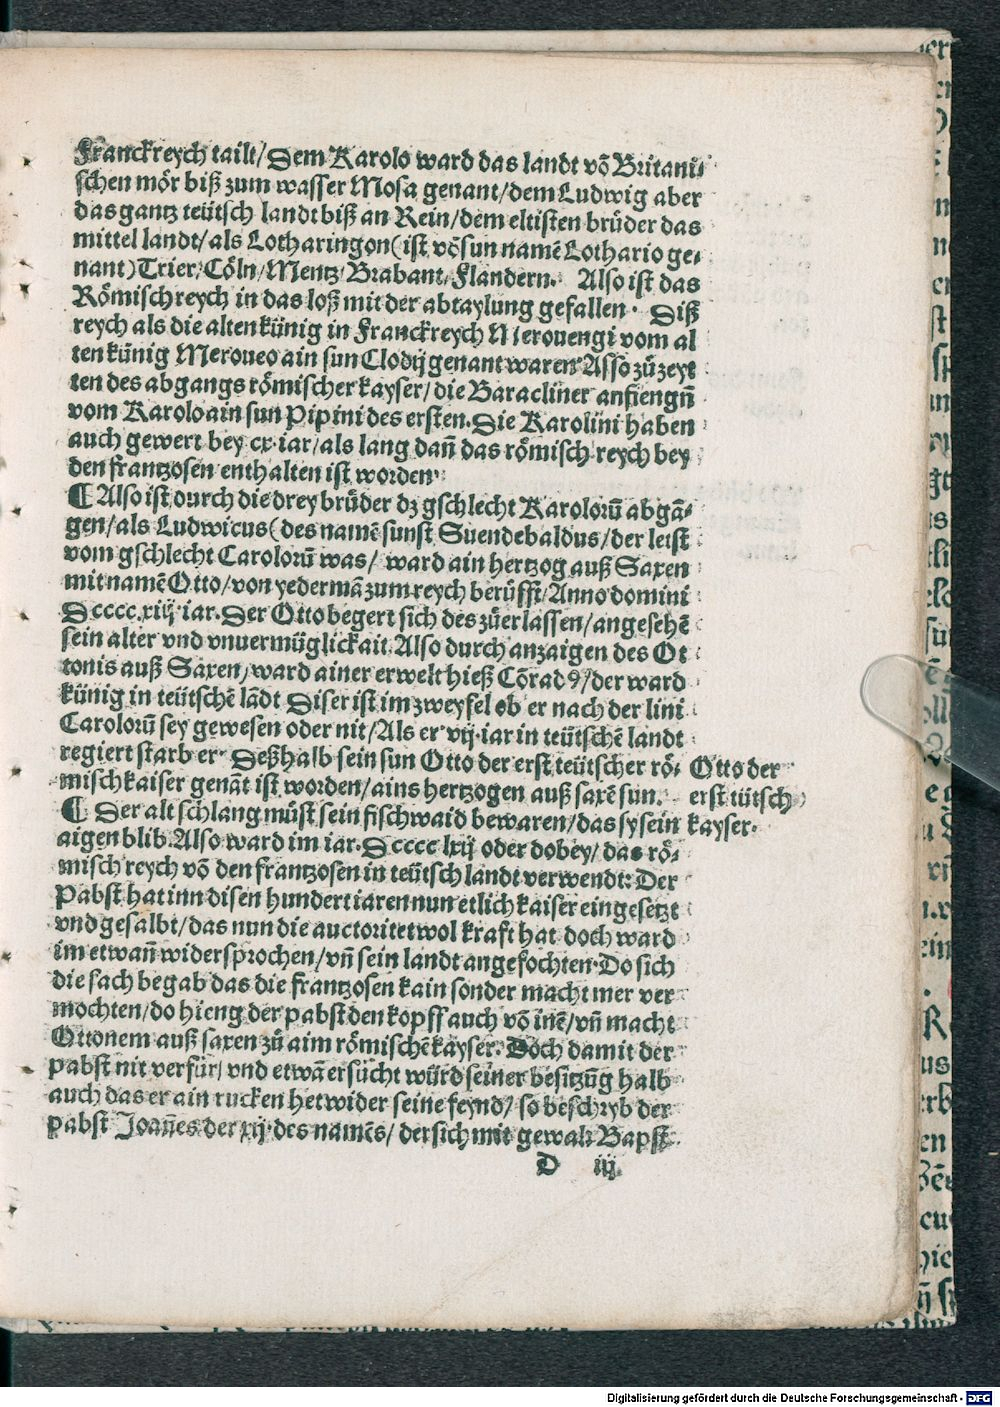 Franckreych tailt/ Dem Karolo ward das landt võ Britani⸗
schen mör biß zum wasser Mosa genant/ dem Ludwig aber
das gantz teütsch landt biß an Rein/ dem eltisten brůder das
mittel landt/ als Lotharingon (ist võ sun namẽ Lothario ge⸗
nant) Trier/ Cöln/ Mentz/ Brabant/ Flandern. Also ist das
Römisch reych in das loß mit der abtaylung gefallen. Diß
reych als die alten künig in Franckreych Merouengi vom al
ten künig Meroueo ain sun Clodij genant waren Also zů zeyt
ten des abgangs römischer kayser/ die Baracliner anfiengñ
vom Karolo ain sun Pipini des ersten. Die Karolini haben
auch gewert bey cx. iar/ als lang dañ das römisch reych bey
den frantzosen enthalten ist worden.
¶ Also ist durch die drey brůder dz gschlecht Karolorũ abgã⸗
gen/ als Ludwicus (des namẽ sunst Suendebaldus/ der letst
vom gschlecht Carolorũ was/ ward ain hertzog auß Saxen
mit namẽ Otto/ von yedermã zum reych berůfft/ Anno domini
Dcccc.xiij. iar. Der Otto begert sich des zů erlassen/ angesehẽ
sein alter vnd vnuermüglickait. Also durch anzaigen des Ot
tonis auß Saxen/ ward ainer erwelt hieß Cõrad9/ der ward
künig in teütschẽ lãdt Diser ist im zweyfel ob er nach der lini
Carolorũ sey gewesen oder nit/ Als er vij. iar in teütschẽ landt
regiert starb er. Deßhalb sein sun Otto der erst teütscher rö⸗
misch kaiser genãt ist worden/ ains hertzogen auß saxẽ sun.
Otto der
erst tütsch
kayser.
¶ Der alt schlang můst sein fischwaid bewaren/ das sy sein
aigen blib. Also ward im iar. Dcccc lxij oder dobey/ das rö⸗
misch reych võ den frantzosen in teütsch landt verwendt: Der
Pabst hat inn disen hundert iaren nun etlich kaiser eingesetzt
vnd gesalbt/ das nun die auctoritet wol kraft hat doch ward
im etwañ widersprochen/ vñ sein landt angefochten. Do sich
die sach begab das die frantzosen kain sonder macht mer ver
mochten/ do hieng der pabst den kopff auch võ inẽ/ vñ macht
Ottonem auß saxen zů aim römischẽ kayser. Doch damit der
pabst nit verfür/ vnd etwã ersůcht würd seiner besitzũg halb
auch das er ain rucken het wider seine feynd/ so beschryb der
pabst Joañes der xij. des namẽs/ der sich mit gewalt Bapst
D iij
Digitalisierung gefördert durch die Deutsche Forschungsgemeinschaft - DFG